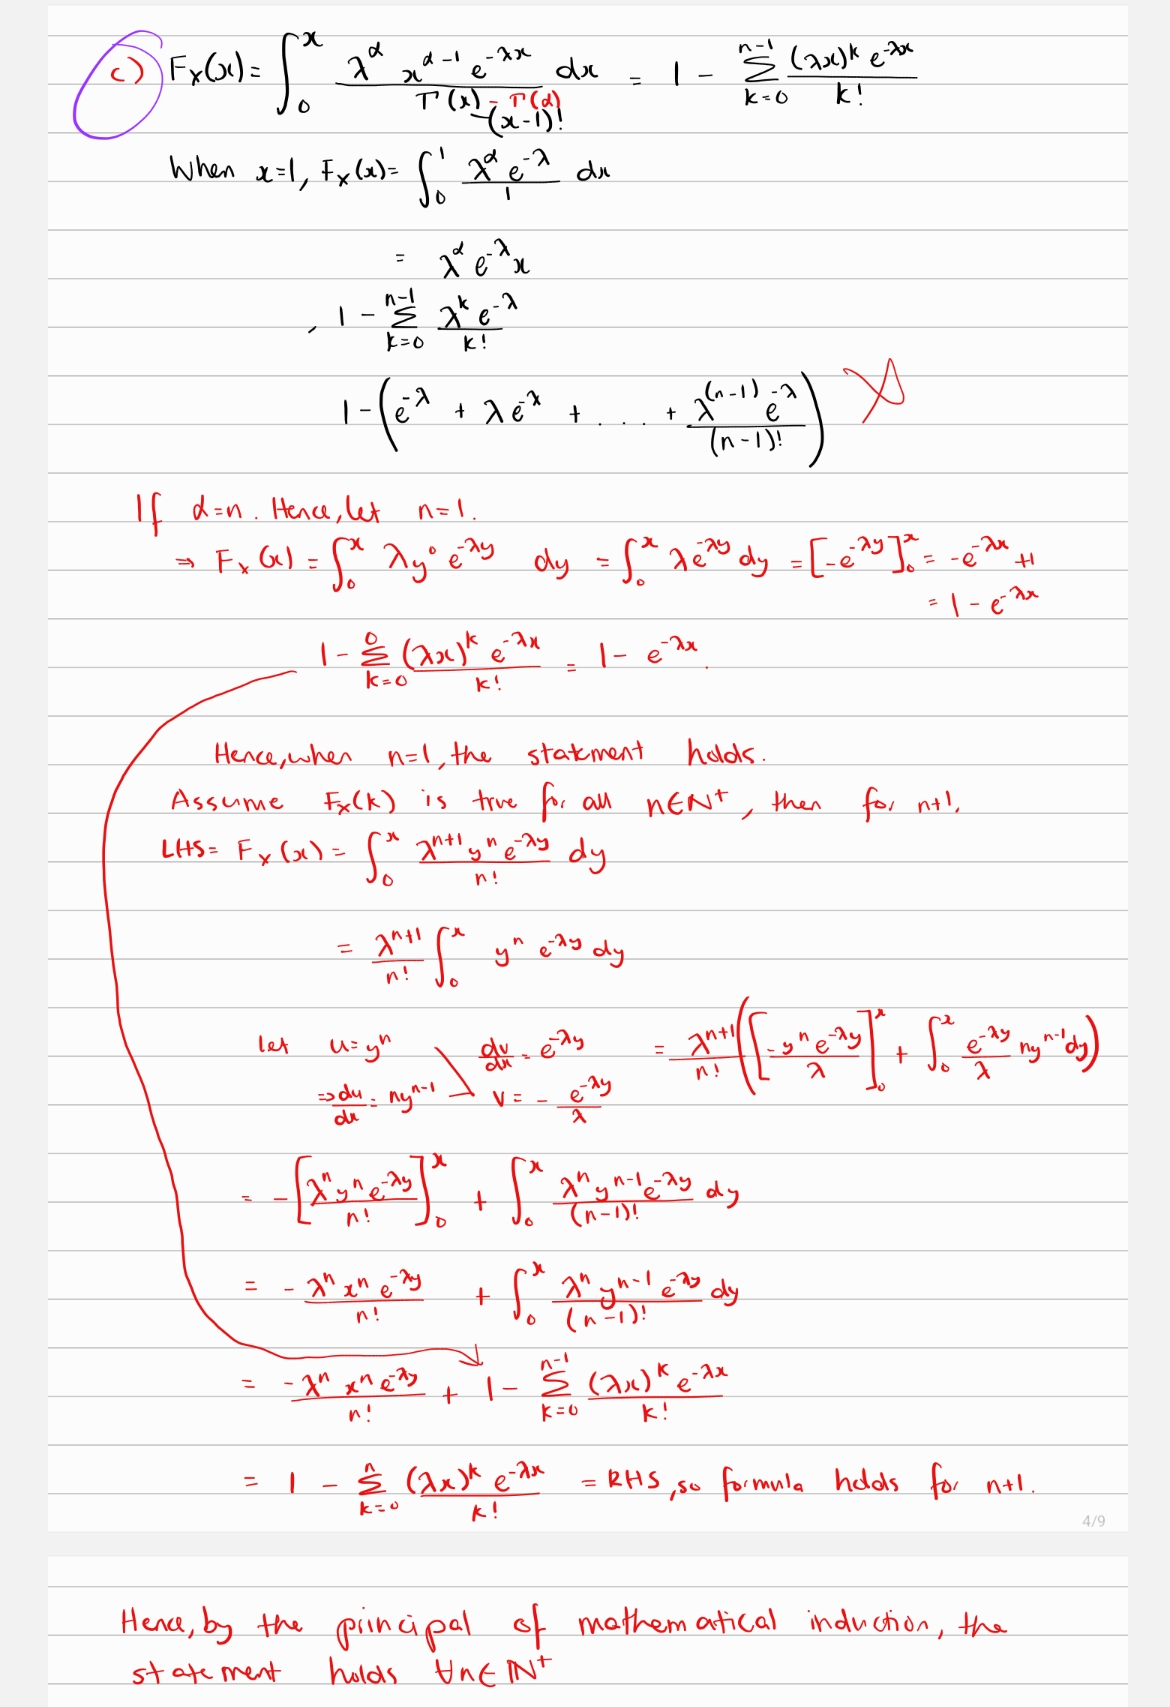 c) Fₓ(x) = ∫₀ˣ λ^α x^(α-1) e^(-λx) / Γ(x) - Γ(α) dx = 1 - Σ_(k=0)^(n-1) (λx)^k e^(-λx) / k!
(x-1)!
When x=1, Fₓ(x) = ∫₀¹ λ^α e^(-λ) / 1 dx
= λ^α e^(-λ) x
, 1 - Σ_(k=0)^(n-1) λ^k e^(-λ) / k!
1 - (e^(-λ) + λe^(-λ) + .... + λ^(n-1) e^(-λ) / (n-1)!)
If α=n. Hence, let n=1.
⇒ Fₓ(x) = ∫₀ˣ λy⁰e^(-λy) dy = ∫₀ˣ λe^(-λy) dy = [-e^(-λy)]₀ˣ = -e^(-λx) +1
= 1 - e^(-λx)
1 - Σ_(k=0)^0 (λx)^k e^(-λx) / k! = 1 - e^(-λx).
Hence, when n=1, the statement holds.
Assume Fₓ(k) is true for all n∈N⁺, then for n+1,
LHS = Fₓ(x) = ∫₀ˣ λ^(n+1) y^n e^(-λy) / n! dy
= λ^(n+1) / n! ∫₀ˣ y^n e^(-λy) dy
let u=y^n dv/dx = e^(-λy) = λ^(n+1) / n! ([-y^n e^(-λy) / λ]₀ˣ + ∫₀ˣ e^(-λy) / λ ny^(n-1) dy)
⇒ du/dx = ny^(n-1) v = - e^(-λy) / λ
= - [λ^n y^n e^(-λy) / n!]₀ˣ + ∫₀ˣ λ^n y^(n-1) e^(-λy) / (n-1)! dy
= - λ^n x^n e^(-λy) / n! + ∫₀ˣ λ^n y^(n-1) e^(-λy) / (n-1)! dy
= -λ^n x^n e^(-λy) / n! + 1 - Σ_(k=0)^(n-1) (λx)^k e^(-λx) / k!
= 1 - Σ_(k=0)^n (λx)^k e^(-λx) / k! = RHS, so formula holds for n+1.
4/9
Hence, by the principal of mathematical induction, the
statement holds ∀n∈ℕ⁺